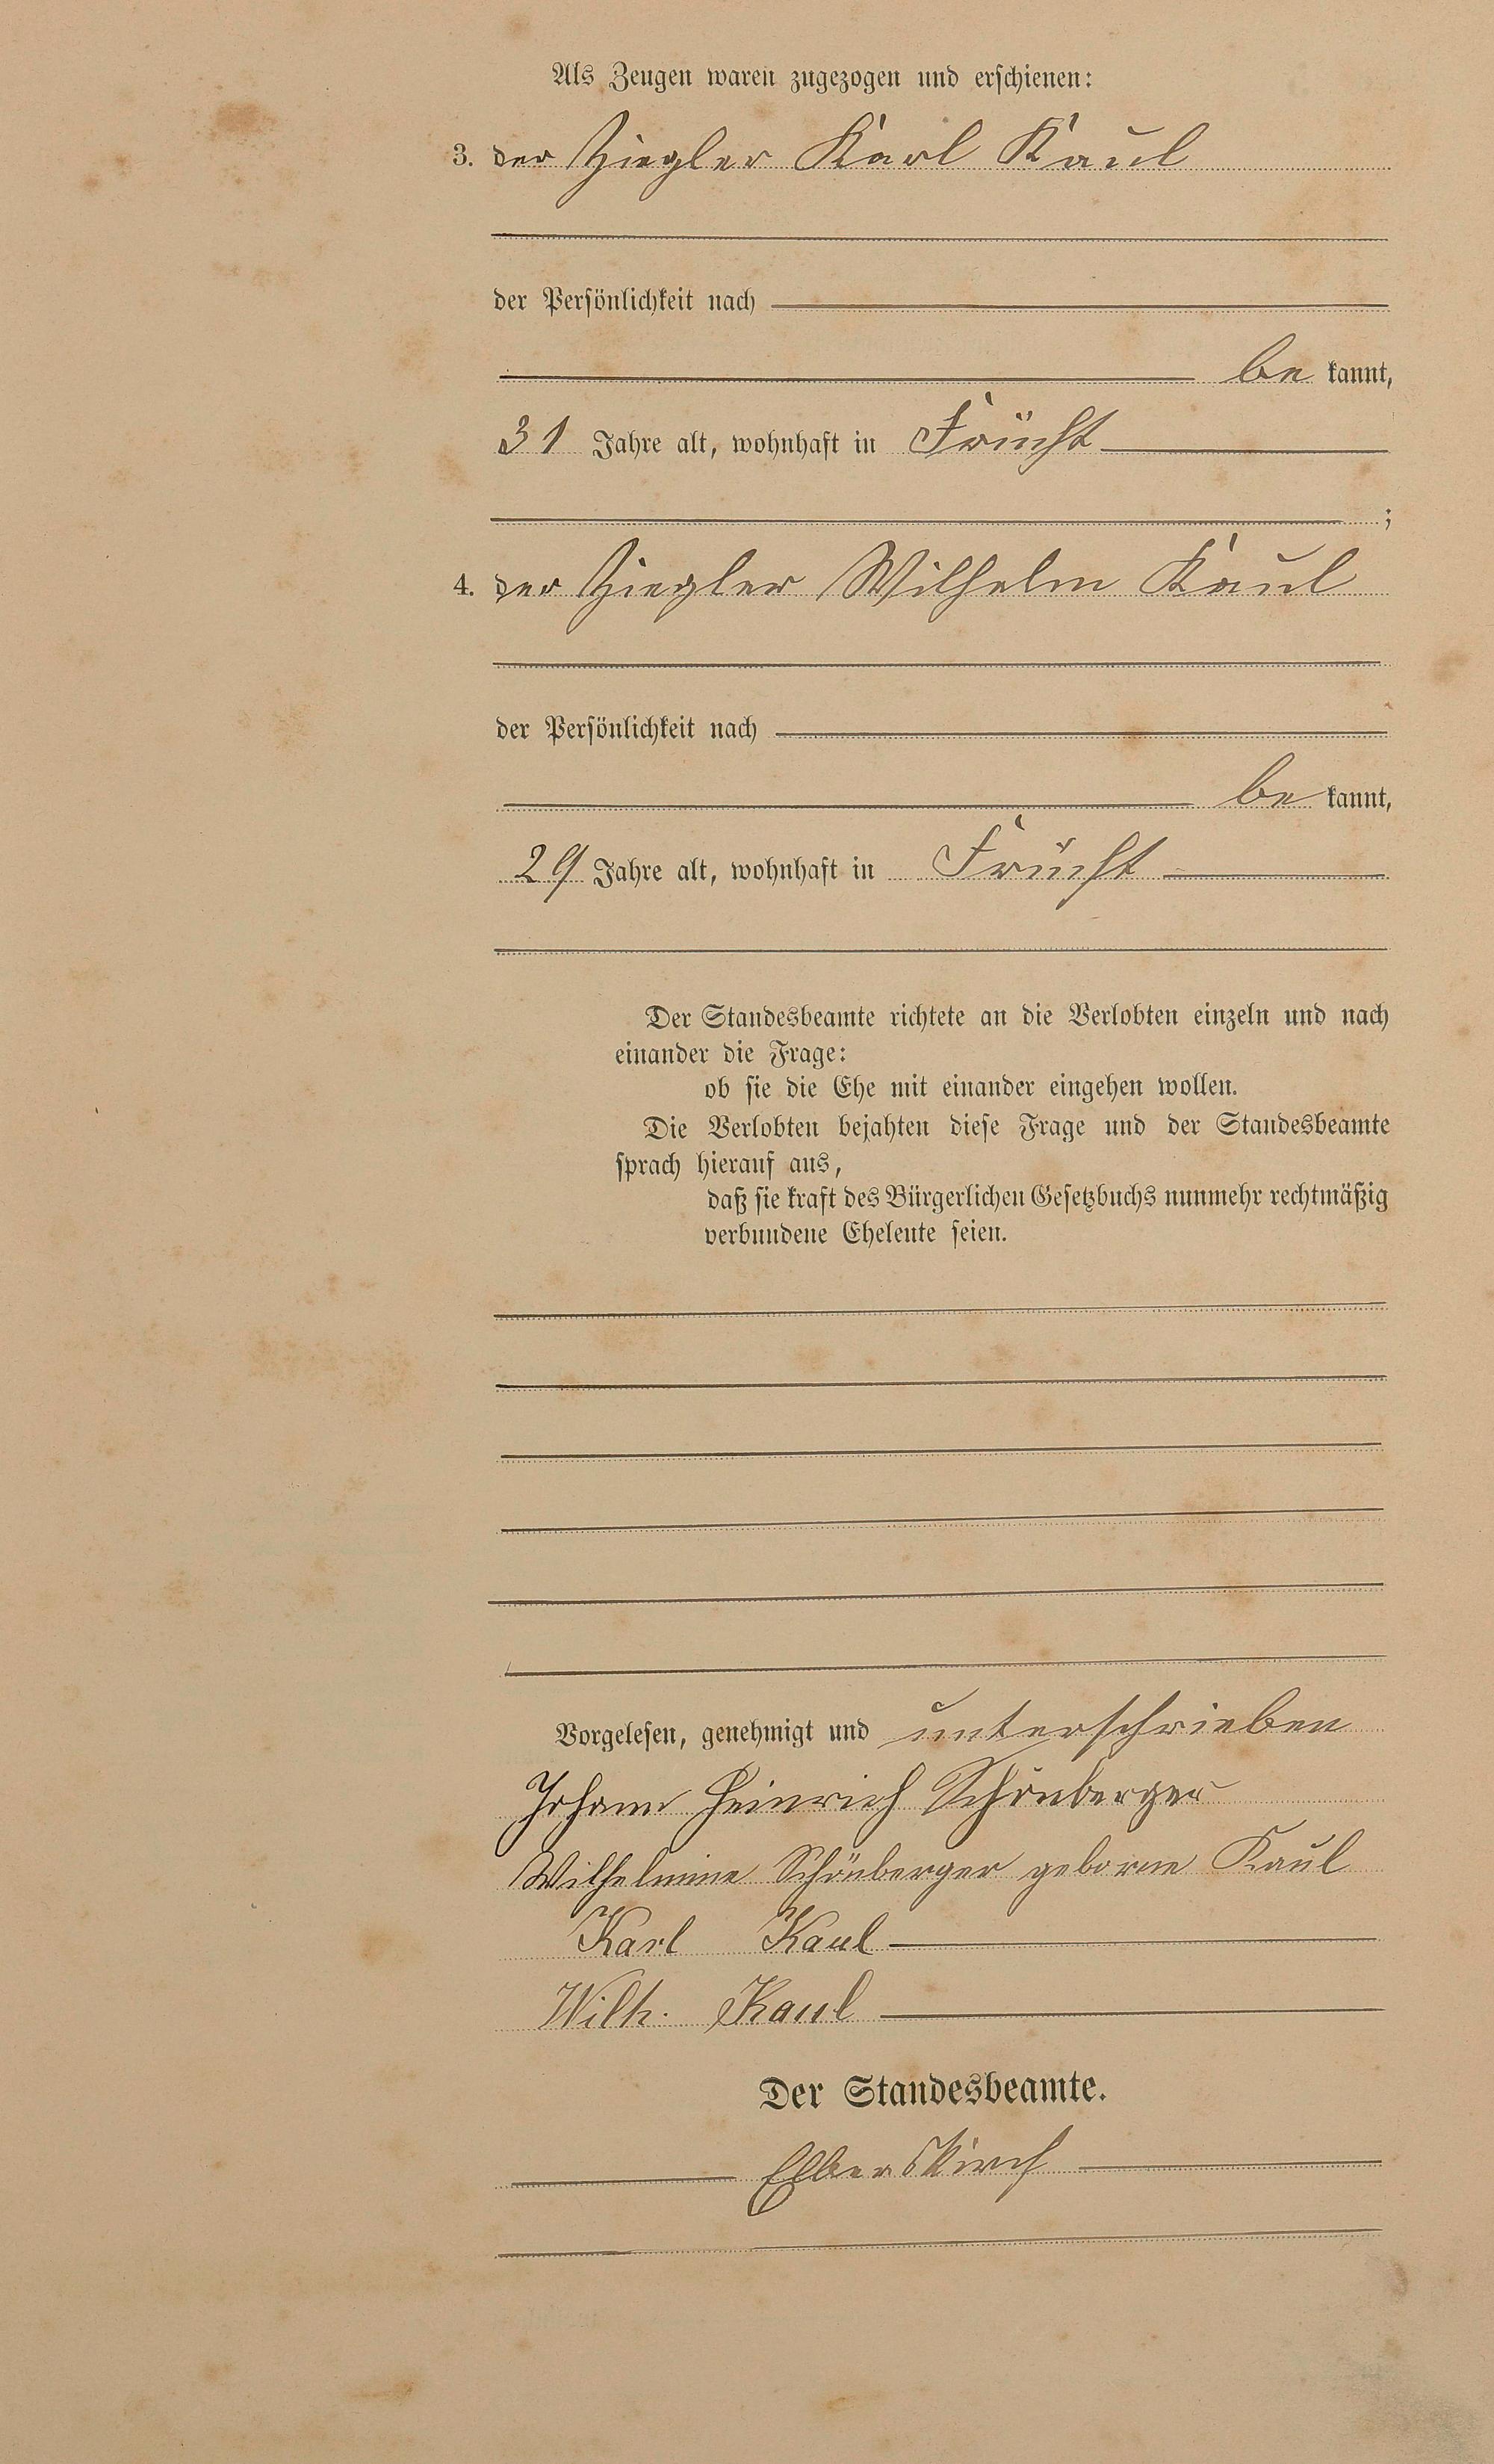 Als Zeugen waren zugezogen und erschienen:
3. der Ziegler Karl Kaul
der Persönlichkeit nach
be kannt,
31 Jahre alt, wohnhaft in Frücht
;
4. der Ziegler Wilhelm Kaul
der Persönlichkeit nach
be kannt,
29 Jahre alt, wohnhaft in Frücht
Der Standesbeamte richtete an die Verlobten einzeln und nach
einander die Frage:
ob sie die Ehe mit einander eingehen wollen.
Die Verlobten bejahten diese Frage und der Standesbeamte
sprach hierauf aus,
daß sie kraft des Bürgerlichen Gesetzbuchs nunmehr rechtmäßig
verbundene Eheleute seien.
Vorgelesen, genehmigt und unterschrieben
Johann Heinrich Schönberger
Wilhelmine Schönberger geborne Kaul
Karl Kaul
Wilh. Kaul
Der Standesbeamte.
Elberskirch